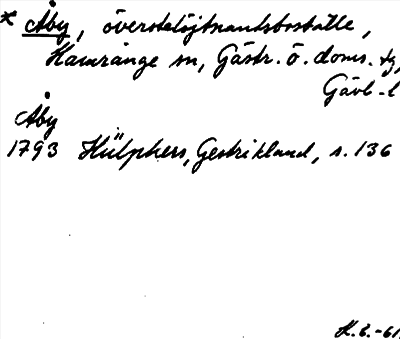 * Åby, överstelöjtnantsboställe,
Hamrånge sn, Gästr. ö. doms. tg,
Gävl-l
Åby
1793 Hülphers, Gestrikland, s. 136
K.B.-61.